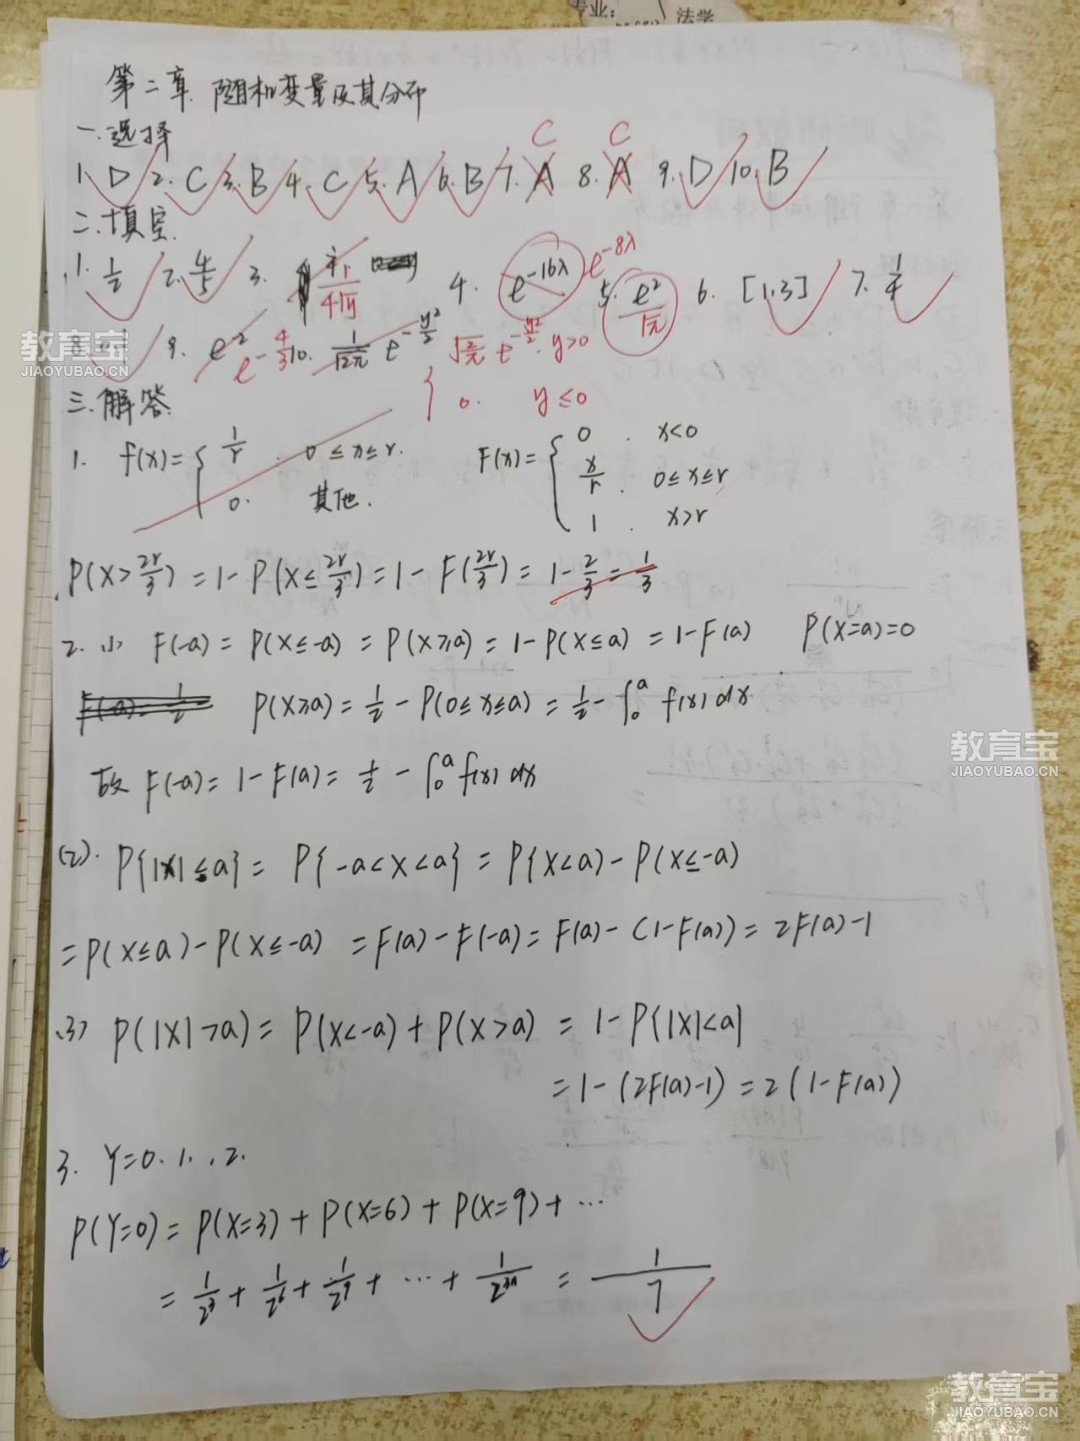 专业:
法学
第二章 随机变量及其分布
一.选择
C C
1.D 2.C 3.B 4.C 5.A 6.B 7.A 8.A 9.D 10.B
二.填空
1. 1/2 2. 4/5 3. 1/(4√y) 4. e^(-16λ) e^(-8λ) 5. e²/√π 6. [1,3] 7. 1/4
8. 9. e² e^(-4/3) 10. 1/√(2π) e^(-y²/2) √(2/π) e^(-y²/2). y>0
0. y≤0
三.解答
1. f(x)={ 1/r . 0≤x≤r. F(x)={ 0 . x<0
0. 其他. x/r . 0≤x≤r
1 . x>r
P(X>2r/3)=1-P(X≤2r/3)=1-F(2r/3)=1-2/3=1/3
2. (1) F(-a)=P(X≤-a)=P(X≥a)=1-P(X≤a)=1-F(a) P(X=a)=0
P(X≥a)=1/2-P(0≤x≤a)=1/2-∫₀ᵃ f(x)dx
故 F(-a)=1-F(a)=1/2-∫₀ᵃ f(x)dx
(2). P{|X|≤a}=P{-a<X<a}=P{X<a)-P(X≤-a)
=P(X≤a)-P(X≤-a) =F(a)-F(-a)=F(a)-(1-F(a))=2F(a)-1
(3) P(|X|>a)=P(X<-a)+P(X>a) =1-P{|X|<a}
=1-(2F(a)-1)=2(1-F(a))
3. Y=0.1.,2.
P(Y=0)=P(X=3)+P(X=6)+P(X=9)+…
=1/2³+1/2⁶+1/2⁹+…+1/2³ⁿ = 1/7
教育宝
JIAOYUBAO.CN
教育宝
JIAOYUBAO.CN
教育宝
JIAOYUBAO.CN